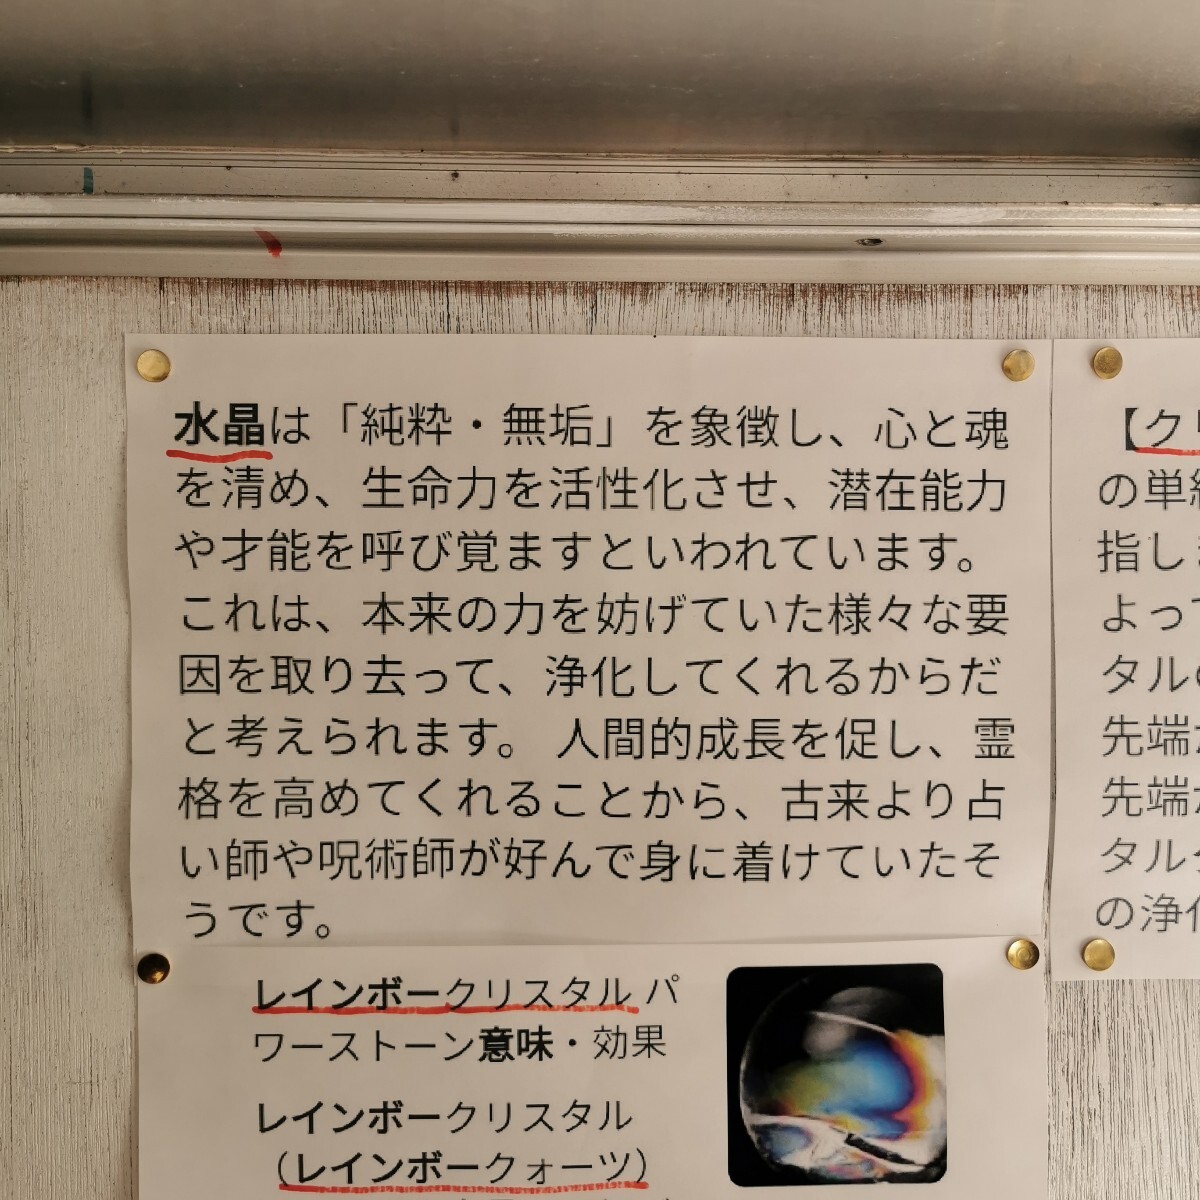 水晶は「純粋・無垢」を象徴し、心と魂
を清め、生命力を活性化させ、潜在能力
や才能を呼び覚ますといわれています。
これは、本来の力を妨げていた様々な要
因を取り去って、浄化してくれるからだ
と考えられます。 人間的成長を促し、霊
格を高めてくれることから、古来より占
い師や呪術師が好んで身に着けていたそ
うです。
レインボークリスタル パ
ワーストーン意味・効果
レインボークリスタル
（レインボークォーツ）
【ク
の単
指し
よっ
タル
先端
先端
タル
の浄